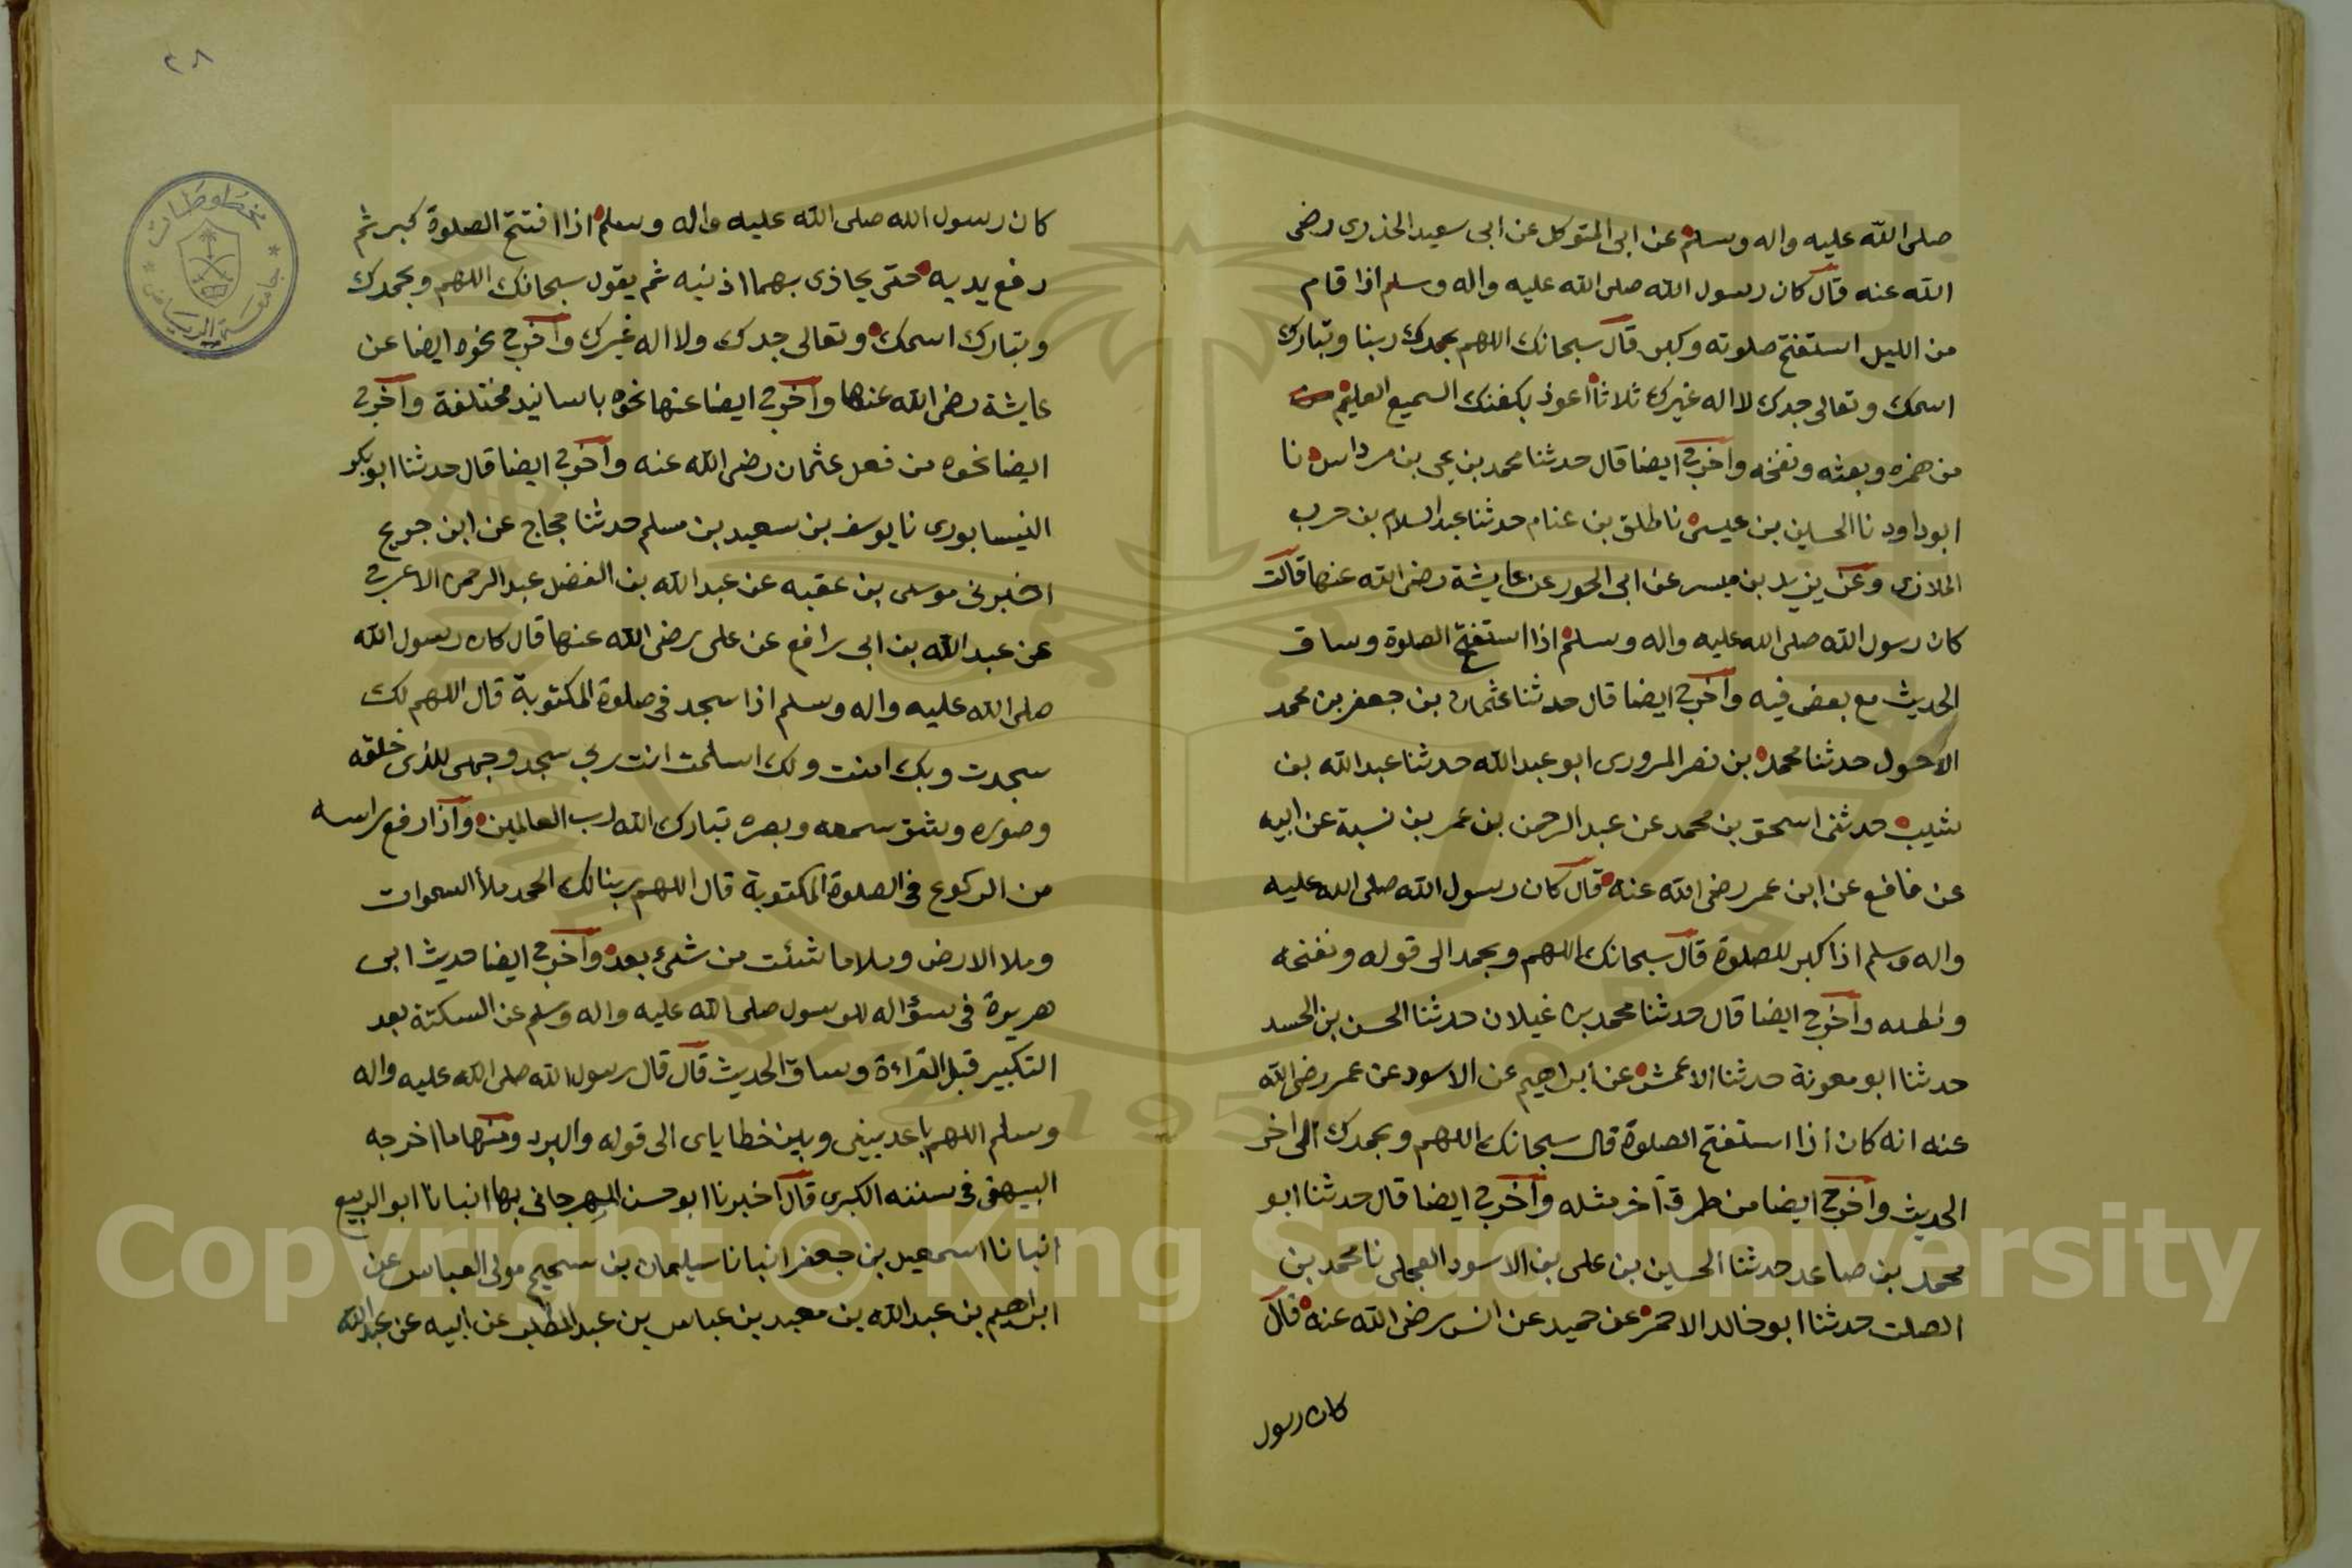 صلى الله عليه واله وسلم عن ابى المتوكل عن ابى سعيد الخذرى رضى
الله عنه قال كان رسول الله صلى الله عليه واله وسلم اذا قام
من الليل استفتح صلوته وكبر قال سبحانك اللهم بحمدك ربنا وتبارك
اسمك وتعالى جدك لا اله غيرك ثلاثا اعوذ السميع العليم
من همزه ونفخه واخرج ايضا قال حدثنا محمد بن يحيى بن مرداس نا
ابوداود نا الحسين بن عيسى نا طلق بن غنام حدثنا عبدالسلام بن حرب
الملاذى وعن عن ابى الحور عن عايشة رضى الله عنها قالت
كان رسول الله صلى الله عليه واله وسلم اذا استفتح الصلوة وساق
الحديث مع بعض فيه واخرج ايضا قال حدثنا عثمان بن جعفر بن محمد
الاحول حدثنا محمد بن نصر المروزى ابو عبدالله حدثنا عبدالله بن
شبيب حدثنى اسحق بن محمد عن عبدالرحمن بن عمر بن شيبة عن ابيه
عن نافع عن ابن عمر رضى الله عنه قال كان رسول الله صلى الله عليه
واله وسلم اذا كبر للصلوة قال سبحانك اللهم وبحمد الى قوله ونفخه
واخرج ايضا قال حدثنا محمد بن غيلان حدثنا الحسن بن الحسد
حدثنا ابو معوية حدثنا الاعمش عن ابراهيم عن الاسود عن عمر رضى الله
عنه انه كان اذا استفتح الصلوة قال سبحانك اللهم وبحمدك الى اخر
الحديث واخرج ايضا من طرق آخر مثله واخرج ايضا قال حدثنا ابو
محمد بن صاعد حدثنا الحسين بن على بن الاسود العجلى نا محمد بن
الصلت حدثنا ابو خالد الاحمر عن حميد عن انس رضى الله عنه قال
كان رسول
٢٨
مخطوطات
جامعة الرياض
كان رسول الله صلى الله عليه واله وسلم اذا افتتح الصلوة كبر ثم
رفع يديه حتى يحاذى بهما اذنيه ثم يقول سبحانك اللهم وبحمدك
وتبارك اسمك وتعالى جدك ولا اله غيرك واخرج نحوه ايضا عن
عايشة رضى الله عنها واخرج ايضا عنها نحوه باسانيد مختلفة واخرج
ايضا نحوه من فعل عثمان رضى الله عنه واخرج ايضا قال حدثنا ابوبكر
النيسابورى نا يوسف بن سعيد بن مسلم حدثنا حجاج عن ابن جريج
اخبرنى موسى بن عقبه عن عبدالله بن الفضل عبدالرحمن الاعرج
عن عبدالله بن ابى رافع عن على رضى الله عنها قال كان رسول الله
صلى الله عليه واله وسلم اذا سجد فى صلوة المكتوبة قال اللهم لك
سجدت وبك امنت ولك اسلمت انت ربي سجد وجهى للذى خلقه
وصوره وشق سمعه وبصره تبارك الله رب العالمين واذا رفع راسه
من الركوع فى الصلوة المكتوبة قال اللهم ربنا لك الحمد ملأ السموات
وملا الارض وملا ما شئت من شئ بعد واخرج ايضا حديث ابى
هريرة فى سؤاله للرسول صلى الله عليه واله وسلم عن السكتة بعد
التكبير قبل القراءة وساق الحديث قال قال رسول الله صلى الله عليه واله
وسلم اللهم باعد بينى وبين خطاياى الى قوله والبرد ومنها ما اخرجه
البيهقى فى سننه الكبرى قال اخبرنا ابو حسن المهرجانى بها انبانا ابو الربيع
انبانا اسمعيل بن جعفر انبانا سليمان بن سحيم مولى العباس عن
ابراهيم بن عبدالله بن معبد بن عباس بن عبدالمطلب عن ابيه عن عبدالله
Copyright © King Saud University
1957